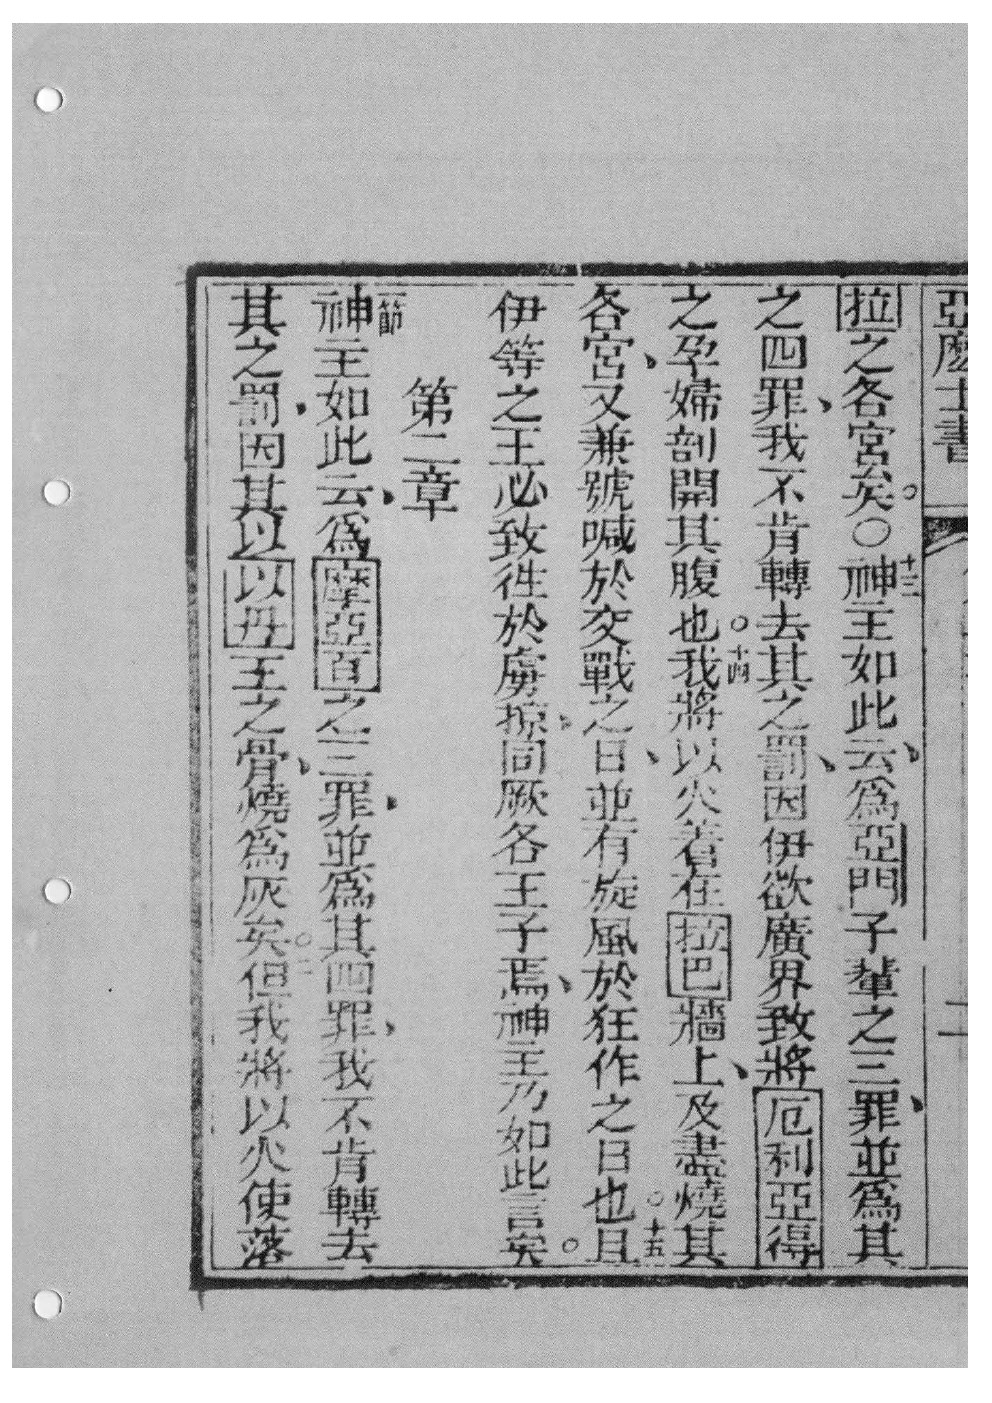 亞麽士書
二
拉之各宮矣。〇十三神主如此云、爲亞門子輩之三罪、並爲其
之四罪、我不肯轉去其之罰、因伊欲廣界致將厄利亞得
之孕婦剖開其腹也。十四我將以火著在拉巴牆上、及盡燒其
各宮、又兼號喊於交戰之日、並有旋風於狂作之日也。十五且
伊等之王必致徃於虜掠、同厥各王子焉、神主乃如此言矣。
第二章
一節神主如此云、爲摩亞百之三罪、並爲其四罪、我不肯轉去
其之罰、因其以以丹王之骨、燒爲灰矣。二但我將以火使落